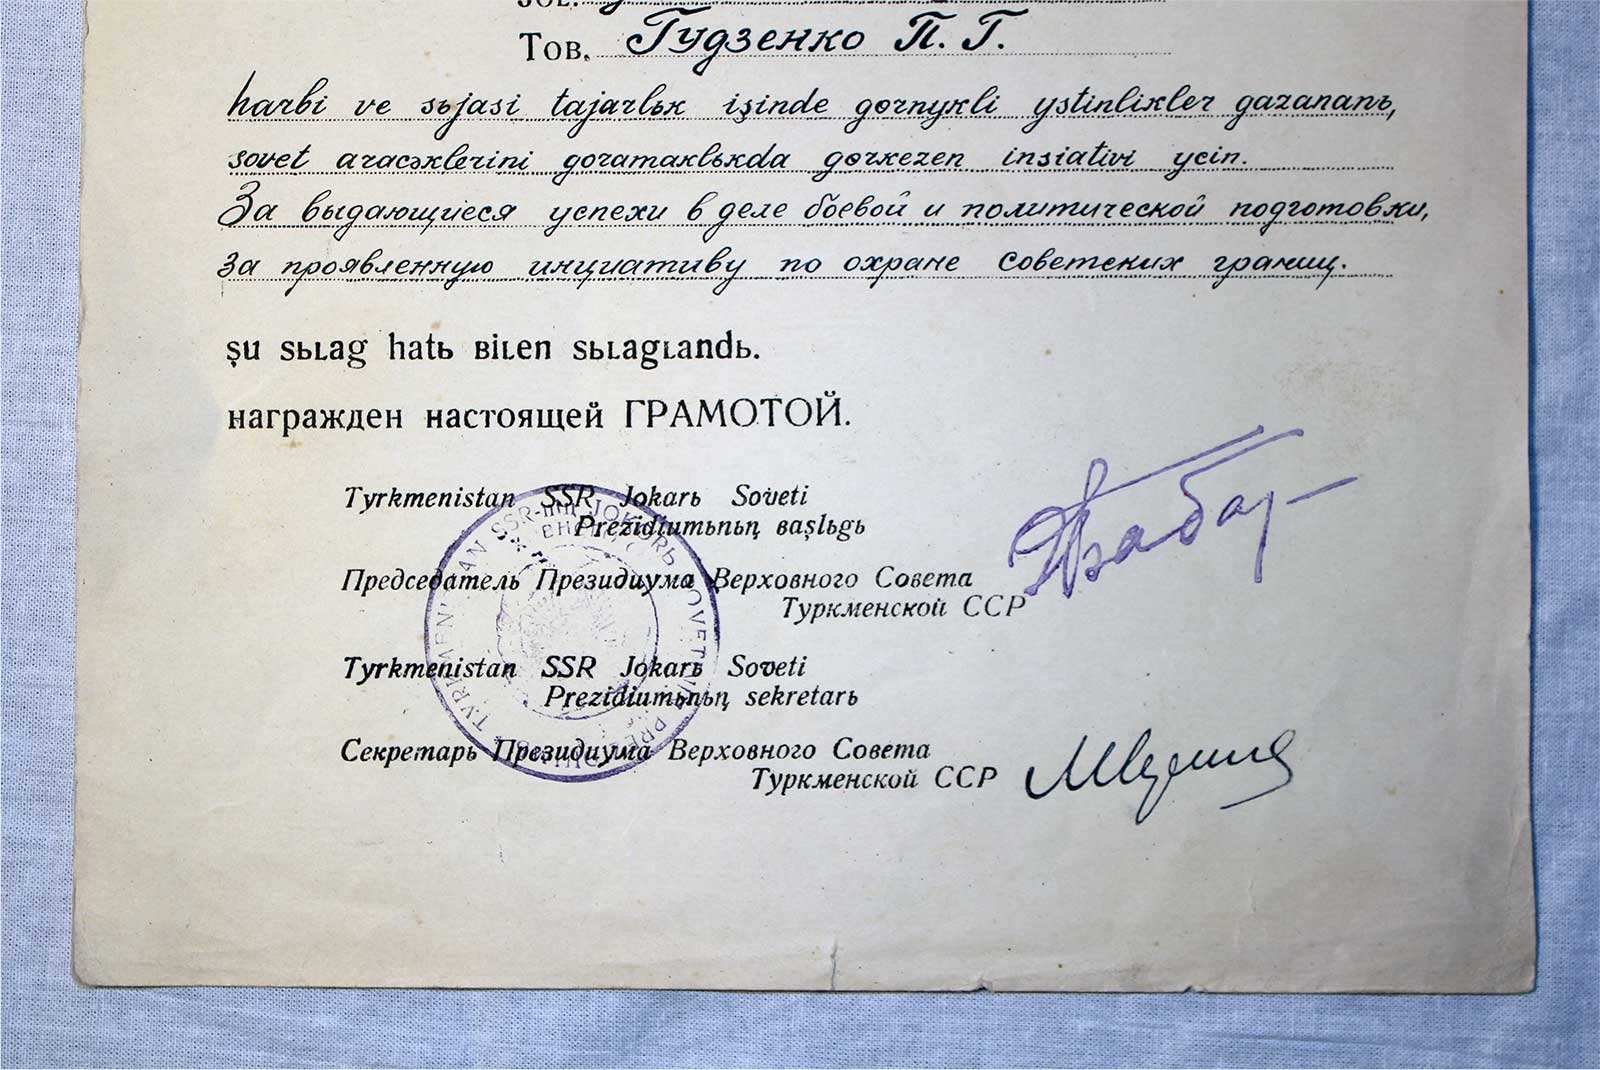 Jol.
Тов. Гудзенко П. Г.
harbi ve sьjasi tajarlьk işinde gөrnykli ystinlikler gazananь,
sovet araçəklerini goramaklьkda gөrkezen insiativi ycin.
За выдающиеся успехи в деле боевой и политической подготовки,
за проявленную инициативу по охране советских границ.
şu sьʟag hatь ʙiʟen sьʟagʟandь.
награжден настоящей ГРАМОТОЙ.
Tyrkmenistan SSR Jokarь Soveti
Prezidiumьnьꞑ ʙaşlьgь
Председатель Президиума Верховного Совета
Туркменской ССР
Tyrkmenistan SSR Jokarь Soveti
Prezidiumьnьꞑ sekretarь
Секретарь Президиума Верховного Совета
Туркменской ССР